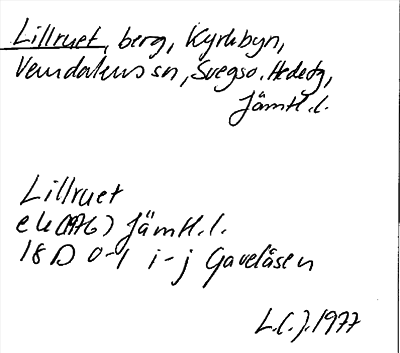 Lillruet, berg, Kyrkbyn,
Vemdalens sn, Svegs o. Hedetg,
Jämtl. l.
Lillruet
ek (1976) Jämtl. l.
18 D 0-1 i-j Gaveläsen
L.C.J. 1977